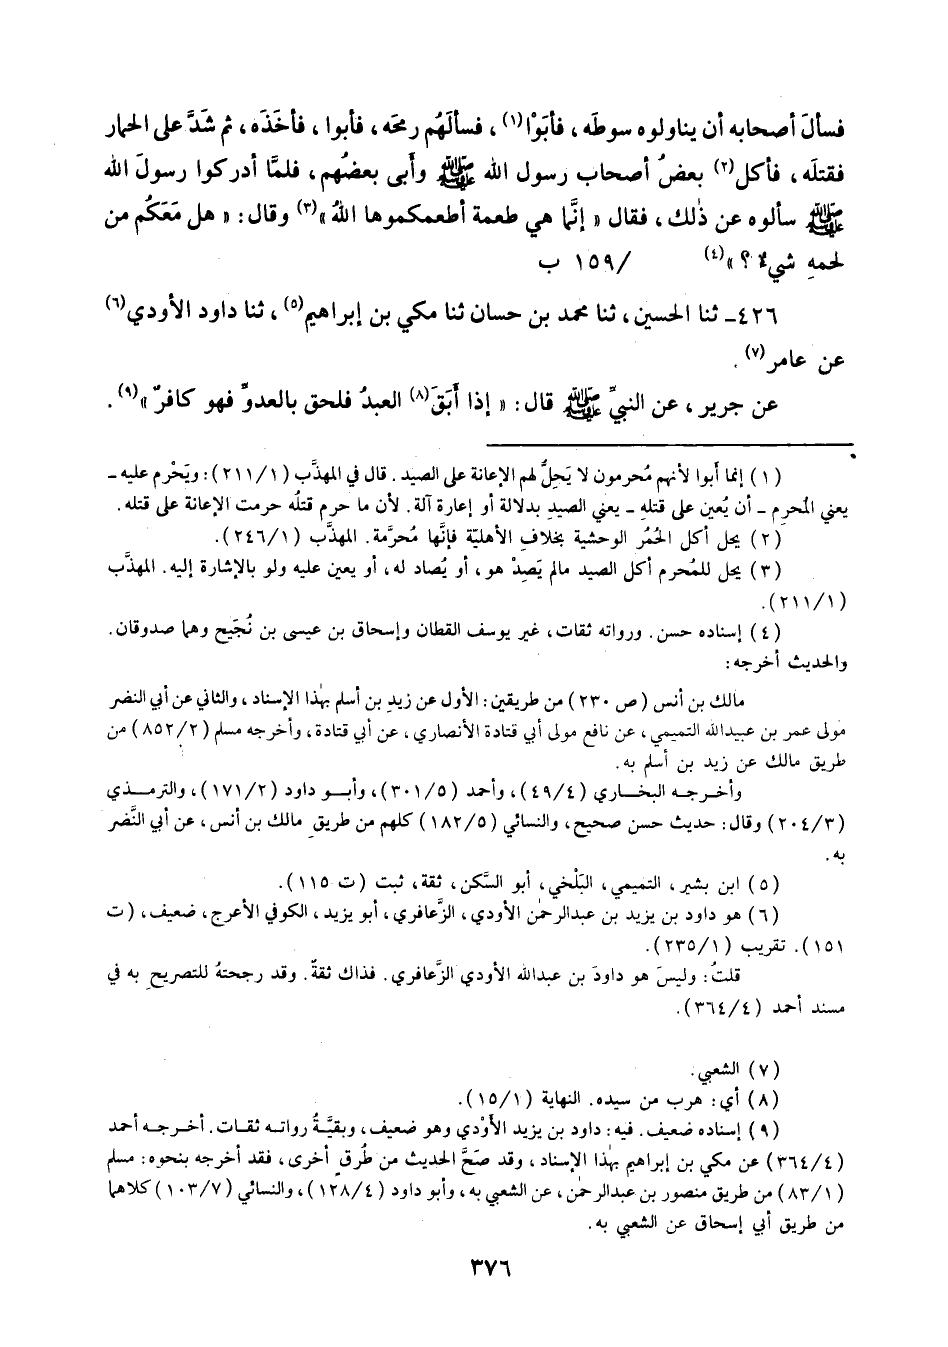 فسألَ أصحابه أن يناولوه سوطَه ، فأبَوْا(١) ، فسألَهُم رمحَه ، فأبوا ، فأخَذَه ، ثم شَدَّ على الحمار
فقتلَه ، فأكل(٢) بعضُ أصحاب رسول الله ﷺ وأبى بعضُهم ، فلمَّا أدركوا رسولَ الله
ﷺ سألوه عن ذٰلك ، فقال « إنَّما هي طعمة أطعمكموها اللهُ »(٣) وقال : « هل مَعَكُم من
لحمهِ شيءٌ ؟ »(٤) /١٥٩ ب
٤٢٦ـ ثنا الحسين ، ثنا محمد بن حسان ثنا مكي بن إبراهيم(٥) ، ثنا داود الأودي(٦)
عن عامر(٧) .
عن جرير ، عن النبيِّ ﷺ قال : « إذا أَبَقَ(٨) العبدُ فلحق بالعدوِّ فهو كافرٌ »(٩) .
(١) إنما أبوا لأنهم مُحرمون لا يَحِلُّ لهم الإعانة على الصيد . قال في المهذَّب (٢١١/١) : ويَحْرم عليه ـ
يعني المُحرِم ـ أن يُعين على قتلهِ ـ يعني الصيدِ بدلالة أو إعارة آلة . لأن ما حرم قتلُه حرمت الإعانة على قتله .
(٢) يحل أكل الحُمُر الوحشية بخلافِ الأهليّة فإنَّها مُحرَّمة . المهذَّب (٢٤٦/١) .
(٣) يحل للمُحرم أكل الصيد مالم يَصِدْ هو ، أو يُصاد له ، أو يعين عليه ولو بالإشارة إليه . المهذَّب
(٢١١/١) .
(٤) إسناده حسن . ورواته ثقات ، غير يوسف القطان وإسحاق بن عيسى بن نُجَيح وهما صدوقان .
والحديث أخرجه :
مالك بن أنس (ص ٢٣٠) من طريقين : الأول عن زيدِ بن أسلم بهٰذا الإسناد ، والثاني عن أبي النضر
مولى عمر بن عبيدالله التميمي ، عن نافع مولى أبي قتادة الأنصاري ، عن أبي قتادة ، وأخرجه مسلم (٨٥٢/٢) من
طريق مالك عن زيد بن أسلم به .
وأخرجه البخاري (٤٩/٤) ، وأحمد (٣٠١/٥) ، وأبو داود (١٧١/٢) ، والترمذي
(٢٠٤/٣) وقال : حديث حسن صحيح ، والنسائي (١٨٢/٥) كلهم من طريقِ مالك بن أنس ، عن أبي النَّضر
به .
(٥) ابن بشير ، التميمي ، البَلْخي ، أبو السَّكن ، ثقة ، ثبت (ت ١١٥) .
(٦) هو داود بن يزيد بن عبدالرحمٰن الأودي ، الزَّعافري ، أبو يزيد ، الكوفي الأعرج ، ضعيف ، (ت
١٥١) . تقريب (٢٣٥/١) .
قلتُ : وليسَ هو داودَ بن عبدالله الأودي الزَّعافري . فذاك ثقةٌ . وقد رجحتهُ للتصريح به في
مسند أحمد (٣٦٤/٤) .
(٧) الشعبي .
(٨) أي : هرب من سيده . النهاية (١٥/١) .
(٩) إسناده ضعيف . فيه : داود بن يزيد الأَوْدي وهو ضعيف ، وبقيَّةُ رواته ثقات . أخرجه أحمد
(٣٦٤/٤) عن مكي بن إبراهيم بهٰذا الإسناد ، وقد صَحَّ الحديث من طُرقٍ أخرى ، فقد أخرجه بنحوه : مسلم
(٨٣/١) من طريق منصور بن عبدالرحمٰن ، عن الشعبي به ، وأبو داود (١٢٨/٤) ، والنسائي (١٠٣/٧) كلاهما
من طريق أبي إسحاق عن الشعبي به .
٣٧٦